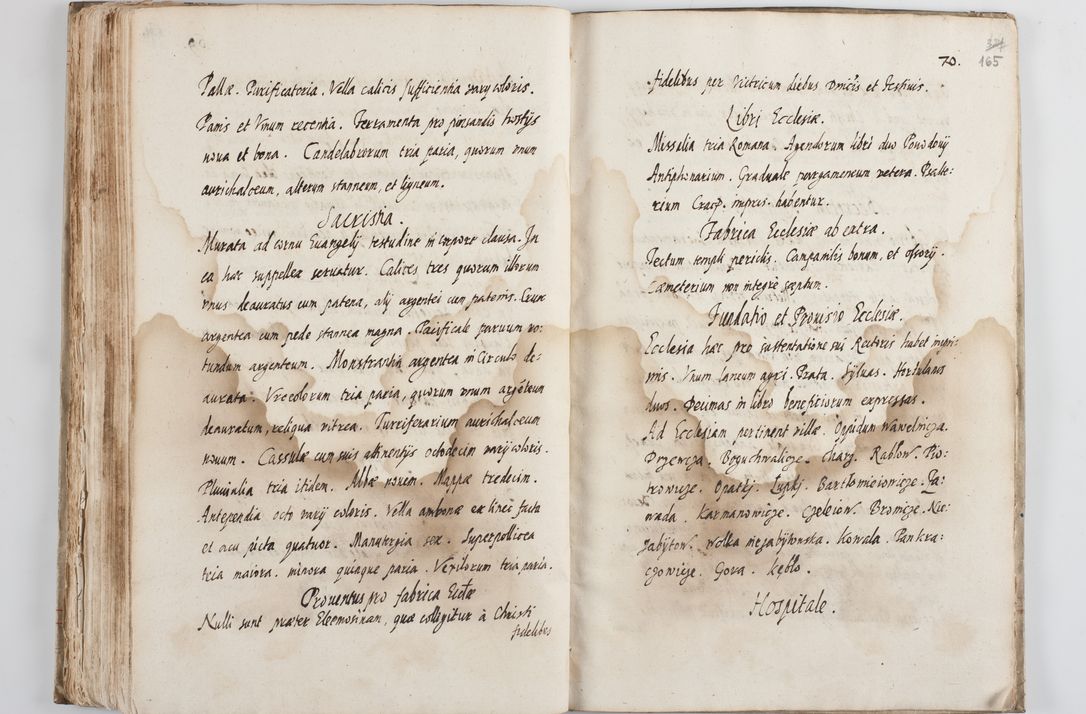 Pallæ. Purificatoria. Vella calicis sufficientia vary coloris.
Panis et Vinum recentia. Ferramenta pro pinsandis hostijs
nova et bona. Candelabrorum tria paria, quorum unum
aurichalceum, alterum stanneum, et ligneum.
Sacristia.
Murata ad cornu Euangelij testudine in corpore clausa. In
ea hæc suppellex servatur. Calices tres quorum illorum
unus deauratus cum patena, alij argentei cum patenis. Crux
argentea cum pede stannea magna. Pacificale parvum ro:
tundum argenteum. Monstrantia argentea in Circulo de:
aurata. Vrceolorum tria paria, quorum unum argẽteum
deauratum, reliqua vitrea. Turriferarium aurichalceum
novum. Cassulæ cum suis attinentijs octodecim varij coloris.
Pluvialia tria itidem. Albæ novem. Mappæ tredecim.
Antependia octo varij coloris. Vella ambonæ ex lineo facta
et acu picta quatuor. Manutergia sex. Superpellicea
tria maiora. minora quinque paria. Vexilorum tria paria.
Proventus pro fabrica Ecclæ
Nulli sunt præter Eleemosinam, quæ colligitur à Christi
fidelibus
70. 165
fidelibus per Victricum diebus Dnicis et Festivis.
Libri Ecclesiæ.
Missalia tria Romana. Agendorum libri duo Powodovij
Antiphonarium. Graduale pargameneum vetera. Psalte:
rium Crac. impres. habentur.
Fabrica Ecclesiæ ab extra.
Tectum templi periclis. Campanilis bonum, et ossorij.
Cæmeterium non integrè sæptum.
Fundatio et Provisio Ecclesiæ.
Ecclesia hæc pro sustentatione sui Rectoris habet inpri:
mis. Vnum laneum agri. Prata. Sylvas. Hortulanos
duos. Decimas in libro beneficiorum expressas.
Ad Ecclesiam pertinent villæ. Oppidum Wąwelnicza.
Drzewcza. Boguchwalicze. Charz. Rablow. Pio:
trowicze. Opatki. Łupki. Bartłomieiowicze. Za:
wada. Karmanowicze. Czeleiow. Bromcze. Nie:
zabytow. Wolka niezabytowska. Kowala. Pankra:
czowicze. Gora. Kębło.
Hospitale.